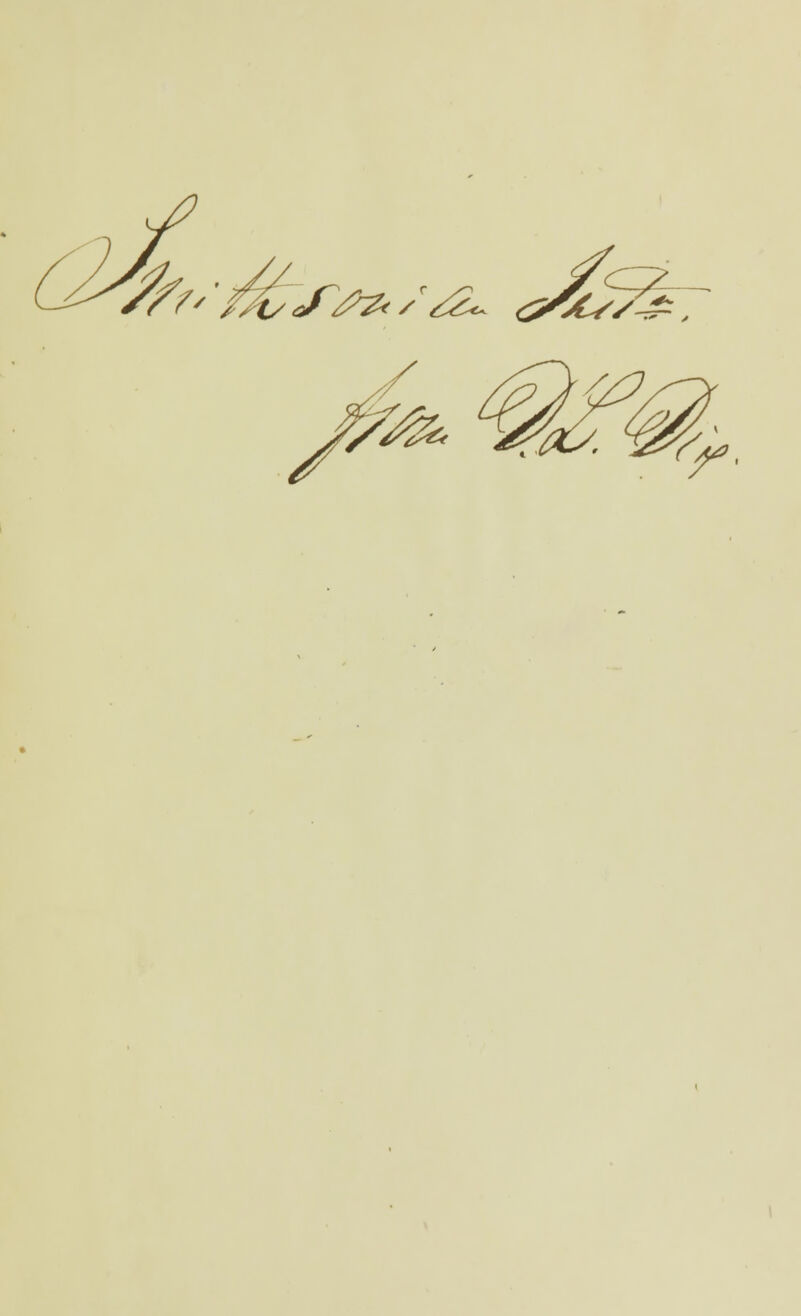 Smithsonian Inst.
from D.L. Dix.